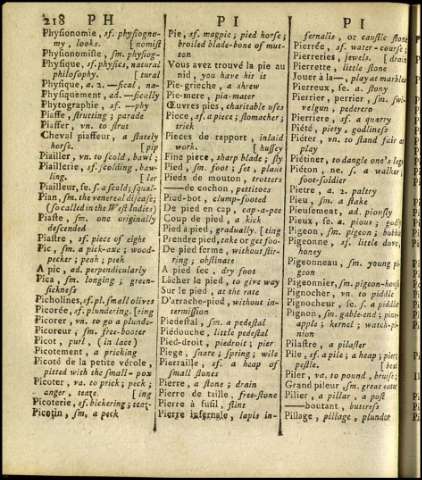 218 PH PI PI
Physionomie, sf. physiogno-
my, looks. [nomist
Physionomiste, sm. physiog-
Physique, sf. physics, natural
philosophy. [tural
Physique, a. 2. —fical, na-
Physiquement, ad. —fically
Phytographie, sf. —phy
Piaffe, structing; parade
Piaffer, vn. to strut
Cheval piaffeur, a stately
horse. [pip
Piailler, vn. to scold, bawl;
Piaillerie, sf. scolding, baw-
ling. [ler
Piailleur, sm. f. a scold, squal-
Pian, sm. the venereal disease
(so called in the West Indies)
Piaste, sm. one originally
descended
Piastre, sf. piece of eight
Pic, sm. a pick-axe; wood-
pecker; peak; peek
A pic, ad. perpendicularly
Pica, sm. longing; green-
sickness
Picholines, sf. pl. small olives
Picorée, sf. plundering. [ring
Picorer, vn. to go a plunde-
Picoreur, sm. free-booter
Picot, purl, (in lace)
Picotement, a pricking
Picoté de la petite vérole,
pitted with the small-pox
Picoter, va. to prick; peck;
anger, teaze. [ing
Picoterie, sf. bickering; teaz-
Picotin, sm. a peck
Pie, sf. magpie; pied horse;
broiled blade-bone of mut-
ton
Vous avez trouvé la pie au
nid, you have hit it
Pie-grièche, a shrew
Pie-mere, pia-mater
Œuvres pies, charitable uses
Piece, sf. a piece; stomacher;
trick
Pieces de rapport, inlaid
work. [hussey
Fine piece, sharp blade; sly
Pied, sm. foot; set, plant
Pieds de mouton, trotters
—de cochon, pettitoes
Pied-bot, clump-footed
De pied en cap, cap-a-pee
Coup de pied, a kick
Pied à pied, gradually. [ting
Prendre pied, take or get foo-
De pied ferme, without stir-
ring; obstinate
A pied sec, dry foot
Lâcher le pied, to give way
Sur le pied, at the rate
D'arrache-pied, without in-
termission
Piédestal, sm. a pedestal
Piédouche, little pedestal
Pied-droit, piedroit; pier
Piege, snare; spring; wile
Pierraille, sf. a heap of
small stones
Pierre, a stone; drain
Pierre de taille, free-stone
Pierre à fusil, flint
Pierre infernale, lapis in-
fernalis, or caustic stone
Pierrée, sf. water-course;
Pierreries, jewels. [drain
Pierrette, little stone
Jouer à la—, play at marbles
Pierreux, se. a. stony
Pierrier, perrier, sm. swi-
velgun, pederero
Pierriere, sf. a quarry
Piété, piety, godliness
Piéter, vn. to stand fair at
play
Piétiner, to dangle one's legs
Piéton, ne. s. a walker;
foot-soldier
Pietre, a. 2. paltry
Pieu, sm. a stake
Pieusement, ad. piously
Pieux, se. a. pious; godly
Pigeon, sm. pigeon; bubble
Pigeonne, sf. little dove,
honey
Pigeonneau, sm. young pi-
geon
Pigeonnier, sm. pigeon-house
Pignocher, vn. to piddle
Pignocheur, se. s. a piddler
Pignon, sm. gable-end; pine-
apple; kernel; watch-pi-
nion
Pilastre, a pilaster
Pile, sf. a pile; a heap; pier;
pestle. [beat
Piler, va. to pound, bruise;
Grand pileur, sm. great eater
Pilier, a pillar, a post
—boutant, butress
Pillage, pillage, plunder